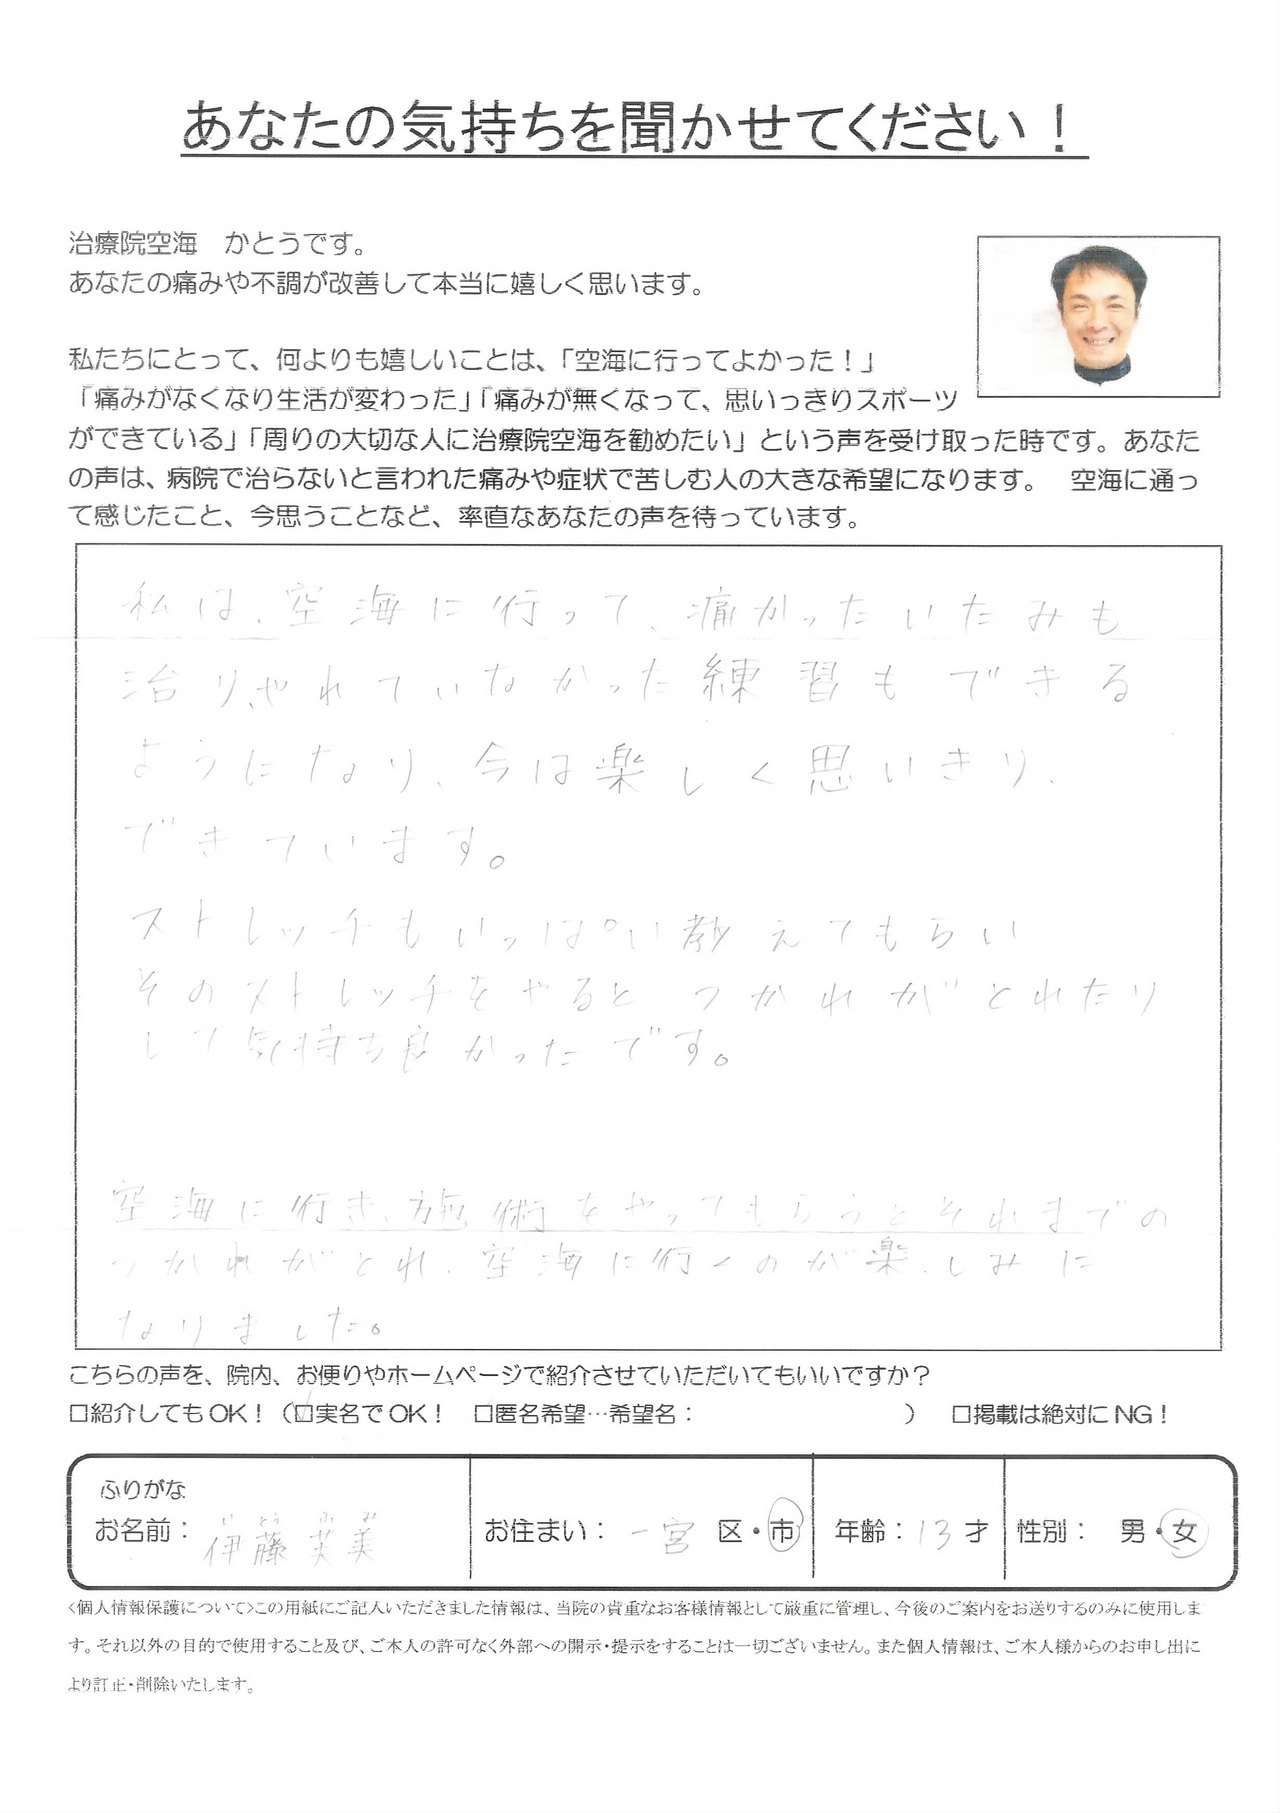 あなたの気持ちを聞かせてください！
治療院空海　かとうです。
あなたの痛みや不調が改善して本当に嬉しく思います。
私たちにとって、何よりも嬉しいことは、「空海に行ってよかった！」
「痛みがなくなり生活が変わった」「痛みが無くなって、思いっきりスポーツ
ができている」「周りの大切な人に治療院空海を勧めたい」という声を受け取った時です。あなた
の声は、病院で治らないと言われた痛みや症状で苦しむ人の大きな希望になります。　空海に通っ
て感じたこと、今思うことなど、率直なあなたの声を待っています。
私は、空海に行って、痛かったいたみも
治り、やれていなかった練習もできる
ようになり、今は楽しく思いきり、
できています。
ストレッチもいっぱい教えてもらい
そのストレッチをやると つかれがとれたり
して気持ち良かったです。
空海に行き、施術をやってもらうとそれまでの
つかれがとれ、空海に行くのが楽しみに
なりました。
こちらの声を、院内、お便りやホームページで紹介させていただいてもいいですか？
□紹介してもOK！（☑実名でOK！　□匿名希望…希望名：　　　　　　　　）　□掲載は絶対にNG！
ふりがな いとう ふみ
お名前：伊藤 芙美　お住まい：一宮 区・市　年齢：13才　性別：　男・女
<個人情報保護について>この用紙にご記入いただきました情報は、当院の貴重なお客様情報として厳重に管理し、今後のご案内をお送りするのみに使用しま
す。それ以外の目的で使用すること及び、ご本人の許可なく外部への開示・提示をすることは一切ございません。また個人情報は、ご本人様からのお申し出に
より訂正・削除いたします。